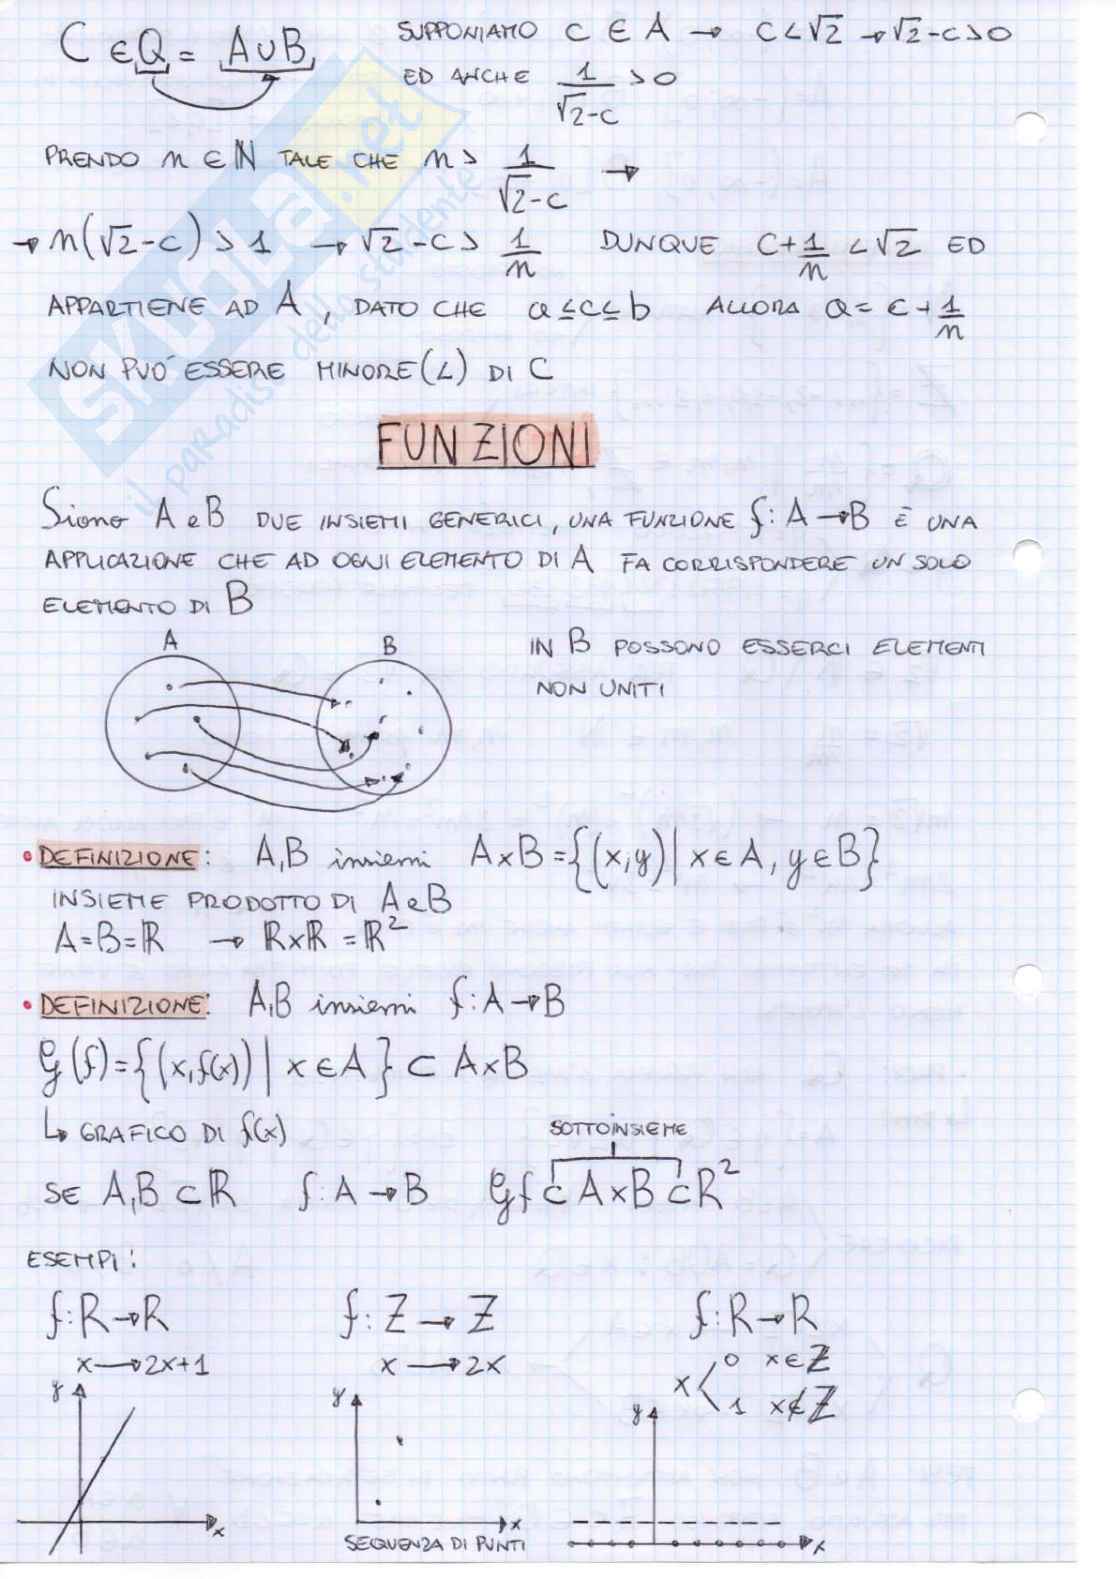 C ∈ Q = A∪B
SUPPONIAMO C ∈ A → C < √2 → √2-C > 0
ED ANCHE 1/(√2-C) > 0
PRENDO n ∈ ℕ TALE CHE n > 1/(√2-C) →
→ n(√2-C) > 1 → √2-C > 1/n DUNQUE C+1/n < √2 ED
APPARTIENE AD A, DATO CHE a ≤ c ≤ b ALLORA a = C+1/n
NON PUÒ ESSERE MINORE (<) DI C
FUNZIONI
Siano A e B DUE INSIEMI GENERICI, UNA FUNZIONE f: A→B È UNA
APPLICAZIONE CHE AD OGNI ELEMENTO DI A FA CORRISPONDERE UN SOLO
ELEMENTO DI B
A B
IN B POSSONO ESSERCI ELEMENTI
NON UNITI
• DEFINIZIONE: A,B insiemi A×B = {(x,y) | x∈A, y∈B}
INSIEME PRODOTTO DI A e B
A=B=ℝ → ℝ×ℝ = ℝ²
• DEFINIZIONE: A,B insiemi f: A→B
G(f) = {(x,f(x)) | x∈A} ⊂ A×B
↳ GRAFICO DI f(x)
SOTTOINSIEME
SE A,B ⊂ ℝ f: A→B Gf ⊂ A×B ⊂ R²
ESEMPI:
f: R→R f: Z→Z f: R→R
x→2x+1 x→2x x < 0 x∈ℤ
1 x∉ℤ
y y y
x x x
SEQUENZA DI PUNTI
SKUOLA.net
il paradiso dello studente